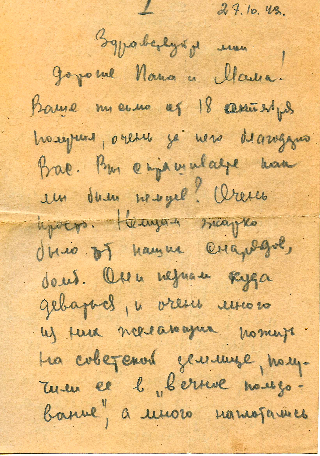 1
27.10.43.
Здравствуйте мои
Дорогие Папа и Мама!
Ваше письмо от 18 сентября
получил, очень за него благодарю
Вас. Вы спрашиваете как
мы били немцев? Очень
просто. Немцам жарко
было от наших снарядов,
бомб. Они не знали куда
деваться, и очень много
из них желающих пожить
на советской землице, полу-
чили ее в "вечное пользо-
вание", а много наглотались